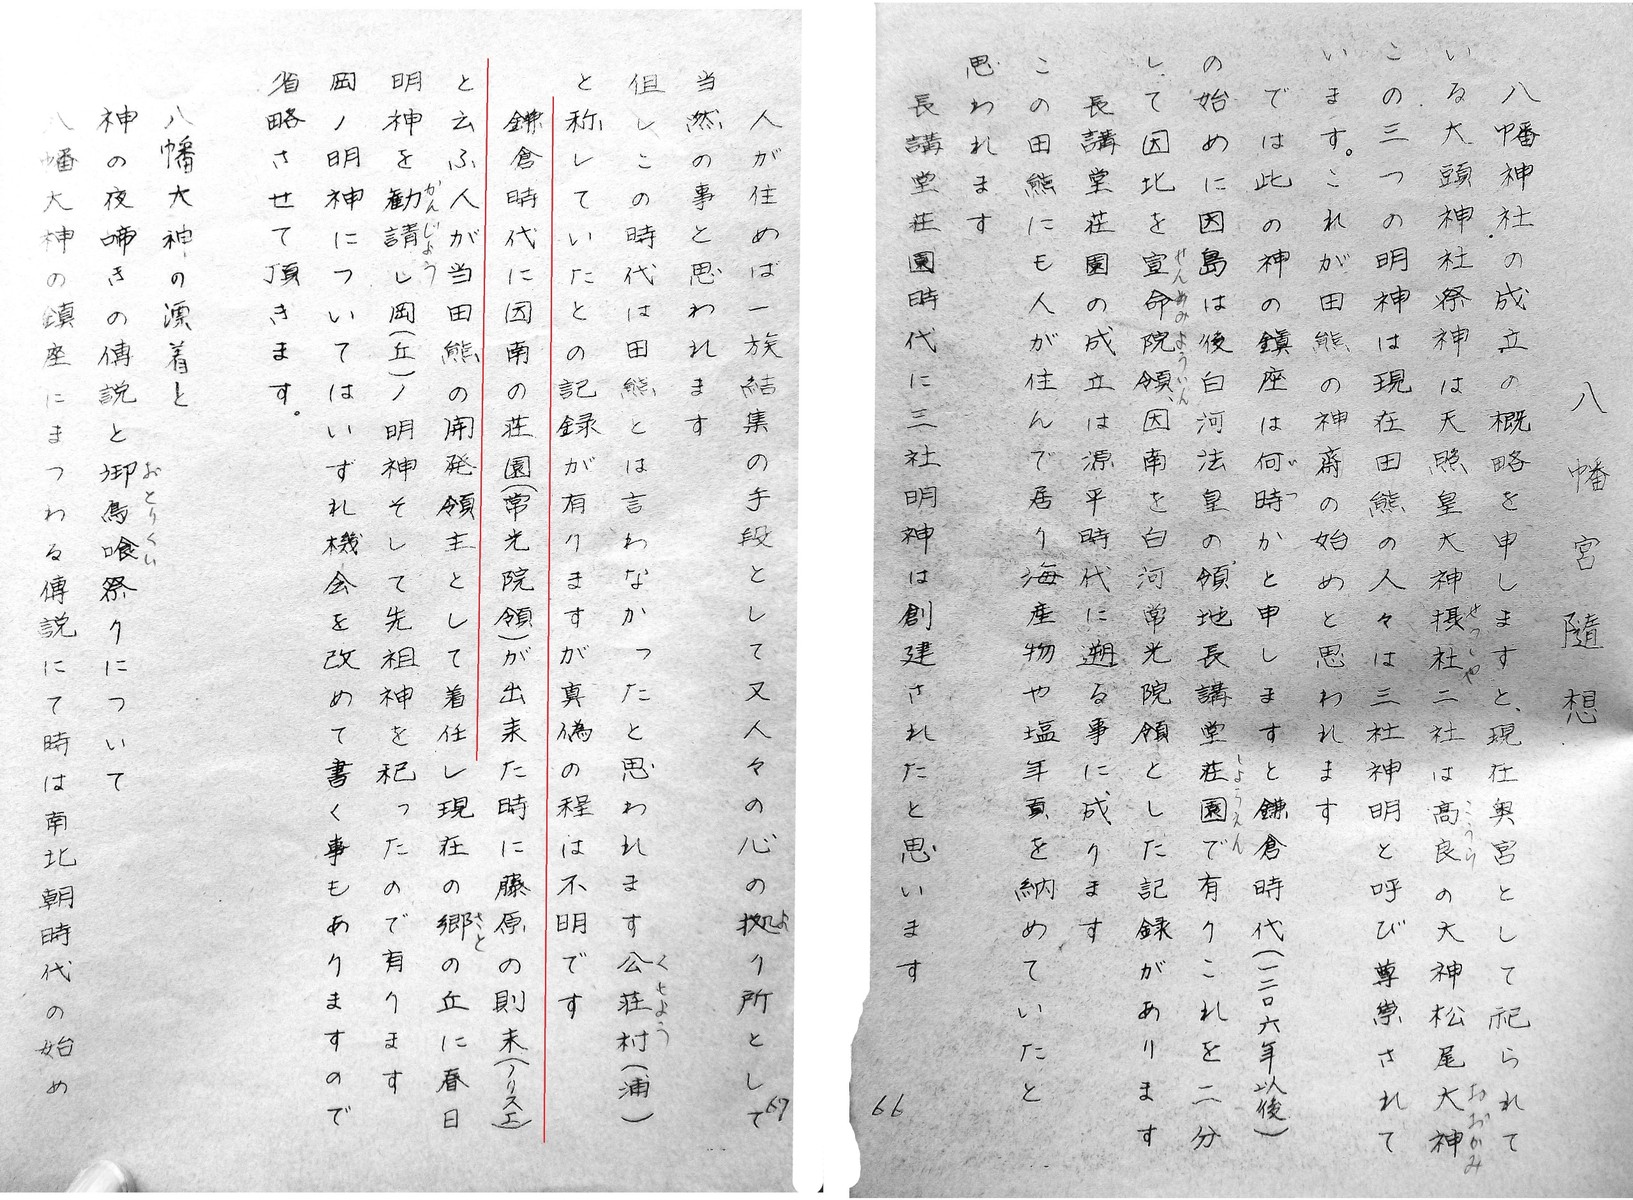 八幡宮隨想
八幡神社の成立の概略を申しますと、現在奥宮として祀られて
いる大頭神社祭神は天照皇大神摂社二社は高良の大神松尾大神
せつしや
こうら
おおかみ
この三つの明神は現在田熊の人々は三社神明と呼び尊崇されて
います。これが田熊の神斎の始めと思われます
では此の神の鎮座は何時かと申しますと鎌倉時代(一二〇六年以後)
いつ
の始めに因島は後白河法皇の領地長講堂荘園で有りこれを二分
しようえん
して因北を宣命院領、因南を白河常光院領とした記録があります
せんめみよういん
長講堂荘園の成立は源平時代に遡る事に成ります
この田熊にも人が住んで居り海産物や塩年貢を納めていたと
思われます
長講堂荘園時代に三社明神は創建されたと思います
66
人が住めば一族結集の手段として又人々の心の拠り所として
よ
当然の事と思われます
但しこの時代は田熊とは言わなかったと思われます公荘村(浦)
くじよう
と称していたとの記録が有りますが真偽の程は不明です
鎌倉時代に因南の荘園(常光院領)が出来た時に藤原の則末(ノリスエ)
と云ふ人が当田熊の開発領主として着任し現在の郷の丘に春日
さと
明神を勧請し岡(丘)ノ明神そして先祖神を祀ったので有ります
かんじよう
岡ノ明神についてはいずれ機会を改めて書く事もありますので
省略させて頂きます。
八幡大神の漂着と
神の夜啼きの傳説と御鳥喰祭りについて
おとりくい
八幡大神の鎮座にまつわる傳説にて時は南北朝時代の始め
67